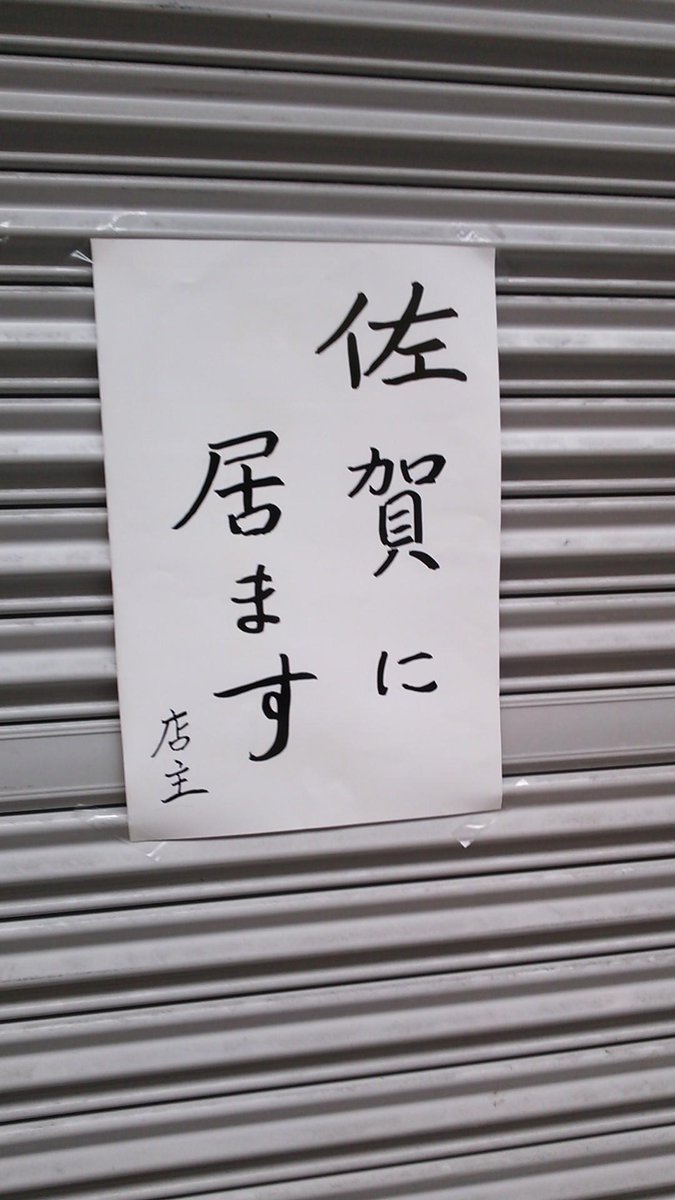 佐賀に
居ます
店主